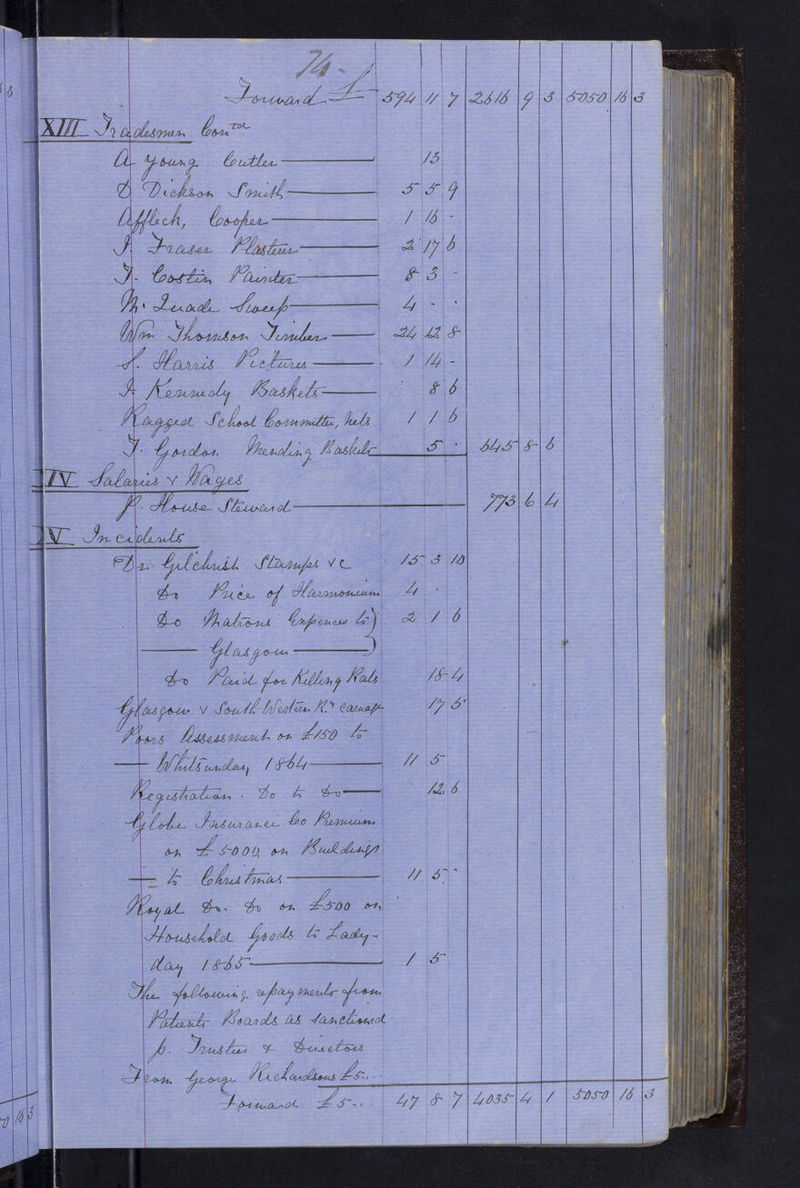 74
Forward £ 594 11 7 2616 9 3 5050 16 3
XIII Tradesmen Contd
A Young Cutler 13
D Dickson Smith 5 5 9
Affleck, Cooper 1 16 -
J. Fraser Plasterer 2 17 6
J. Costin Painter 8 3 -
M. Quade Sweep 4 - -
Wm Thomson Timber 24 12 8
S. Harris Pictures 1 14 -
J. Kennedy Baskets 8 6
Ragged School Committee, Nets 1 1 6
J. Gordon Mending Baskets 5 - 645 8 6
XIV Salaries & Wages
p. House Steward 773 6 4
XV Incidents
Dr Gilchrist Stamps &c 15 3 10
Do Price of Harmonium 4 -
Do Matrons Expences to) 2 1 6
Glasgow )
Do Paid for Killing Rats 18 4
Glasgow & South Western Ry carriage 17 5
Poors Assessment on £150 to
Whitsunday 1864 11 5
Registration. Do to Do 12 6
Globe Insurance Co Premium
on £5000 on Buildings
to Christmas 11 5 -
Royal Do. Do on £500 on
Household Goods to Lady-
day 1865 1 5
The following repayments from
Patients Boards as sanctioned
p. Trustees & Directors
From George Richardsons £5..
Forward £5-.. 47 8 7 4035 4 1 5050 16 3